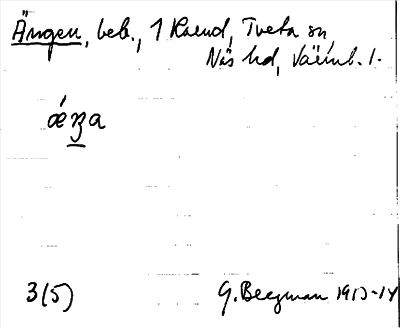 Ängen, beb., 1 Kaend, Tveta sn,
Näs hd, Värml. l.
ǽŋa
3(5)
G. Bergman 1913-14